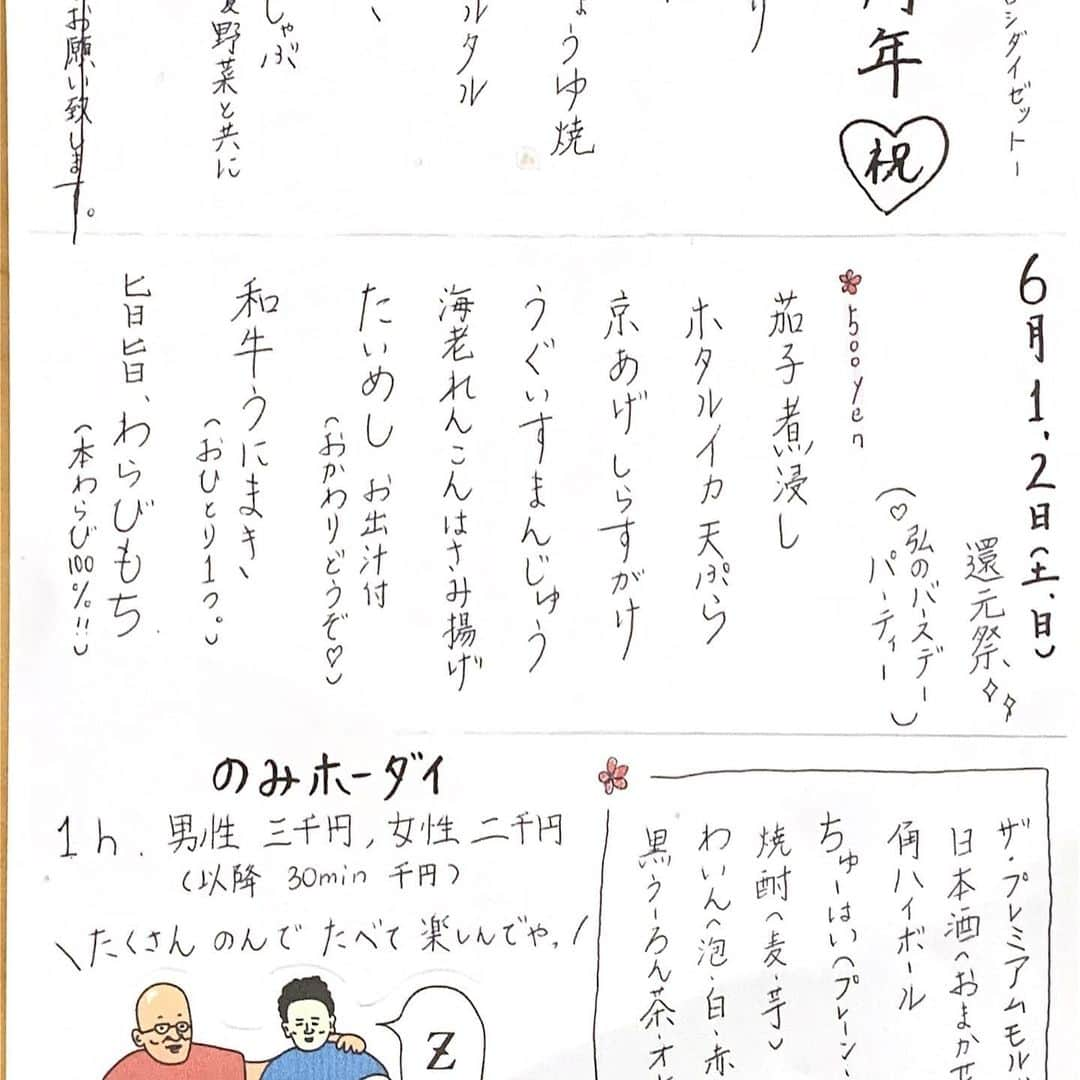 ロシダイゼットー
周年
祝
り
ょうゆ焼
ルタル
、
しゃぶ
夏野菜と共に
お願い致します。
6月1、2日(土、日)
還元祭、
(♡弘のバースデー
パーティー)
5500yen
茄子煮浸し
ホタルイカ天ぷら
京あげしらすがけ
うぐいすまんじゅう
海老れんこんはさみ揚げ
たいめし お出汁付
(おかわりどうぞ♡)
和牛うにまき、
(おひとり1つ。)
旨旨、わらびもち
(本わらび100%!!)
のみホーダイ
1h. 男性 三千円, 女性 二千円
(以降 30min 千円)
\たくさん のんで たべて 楽しんでや。/
Z
ザ・プレミアムモル
日本酒(おまか
角ハイボール
ちゅーはい(プレーン・
焼酎(麦・芋)
わいん(泡・白・赤
黒うーろん茶・オ